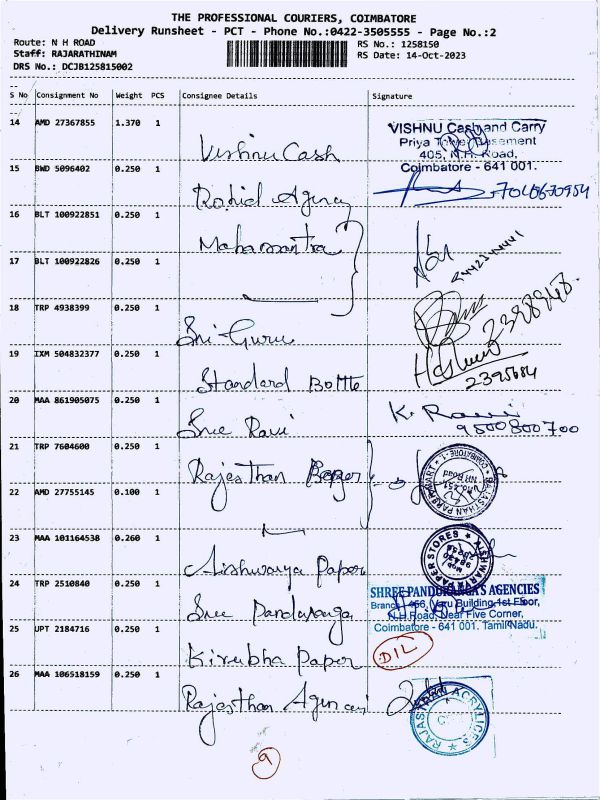 THE PROFESSIONAL COURIERS, COIMBATORE
Delivery Runsheet - PCT - Phone No.:0422-3505555 - Page No.:2
Route: N H ROAD
Staff: RAJARATHINAM
DRS No.: DCJB125815002
RS No.: 1258150
RS Date: 14-Oct-2023
S No Consignment No Weight PCS Consignee Details Signature
14 AMD 27367855 1.370 1 Vishnu Cash
VISHNU Cash and Carry
Priya Tower Basement
405, N.H. Road,
Coimbatore - 641 001.
15 BWD 5096402 0.250 1 Rohid Agency
16 BLT 100922851 0.250 1
17 BLT 100922826 0.250 1
18 TRP 4938399 0.250 1 Sri-Guru
19 IXM 504832377 0.250 1 Standard Bottle
2395684
20 MAA 861905075 0.250 1 Sree Ravi K. Ravi
9500800700
21 TRP 7604600 0.250 1 Rajasthan
22 AMD 27755145 0.100 1
23 MAA 101164538 0.260 1 Aishwarya Paper
AISHWARYA PAPER STORES
24 TRP 2510840 0.250 1 Sree Panduranga
SHREE PANDURANGA'S AGENCIES
Building, 1st Floor,
N.H.Road, Near Five Corner,
Coimbatore - 641 001. Tamil Nadu.
25 UPT 2184716 0.250 1 Kirubha Paper D/L
26 MAA 106518159 0.250 1 Rajasthan
9